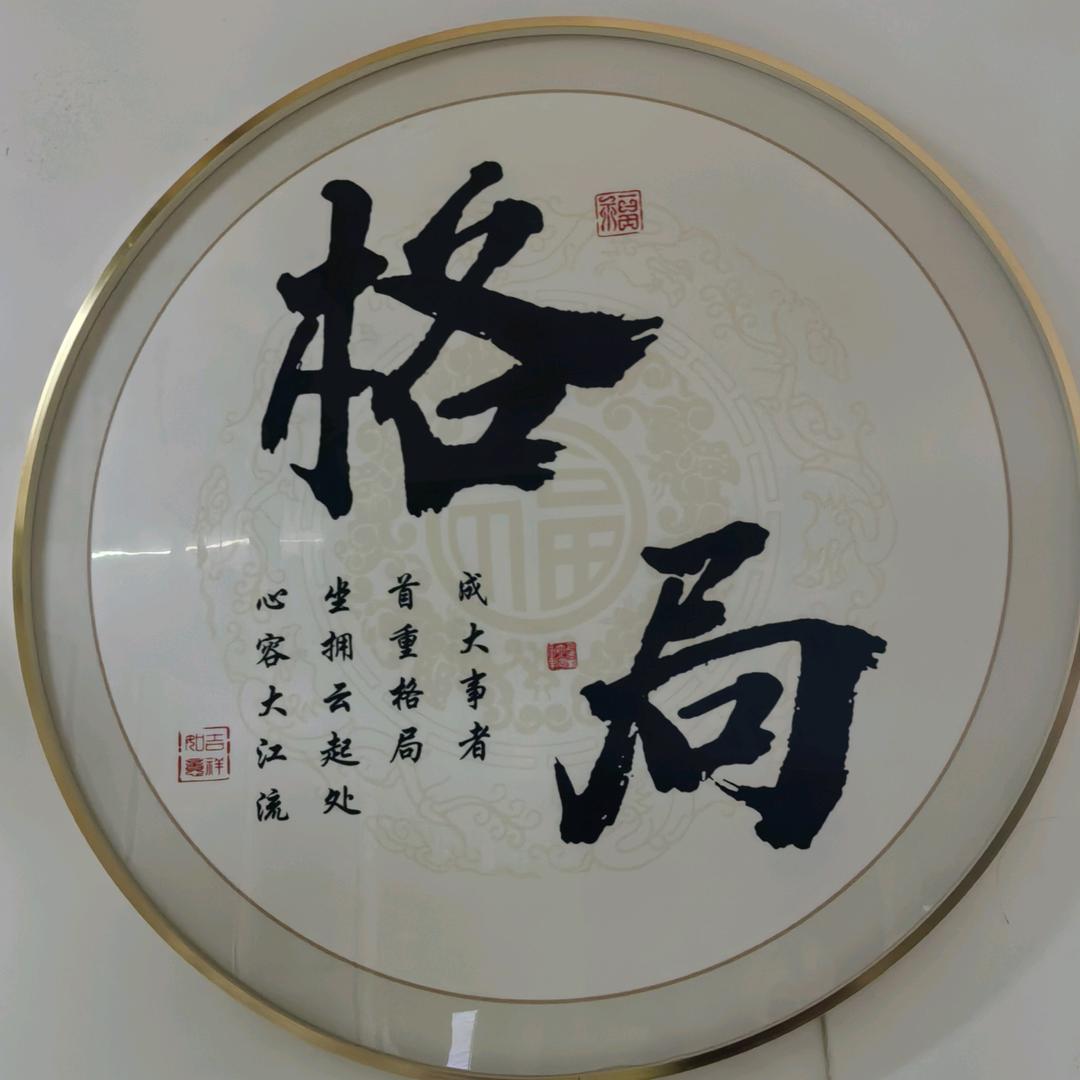 格局
福
福
成大事者
首重格局
坐拥云起处
心容大江流
吉祥如意